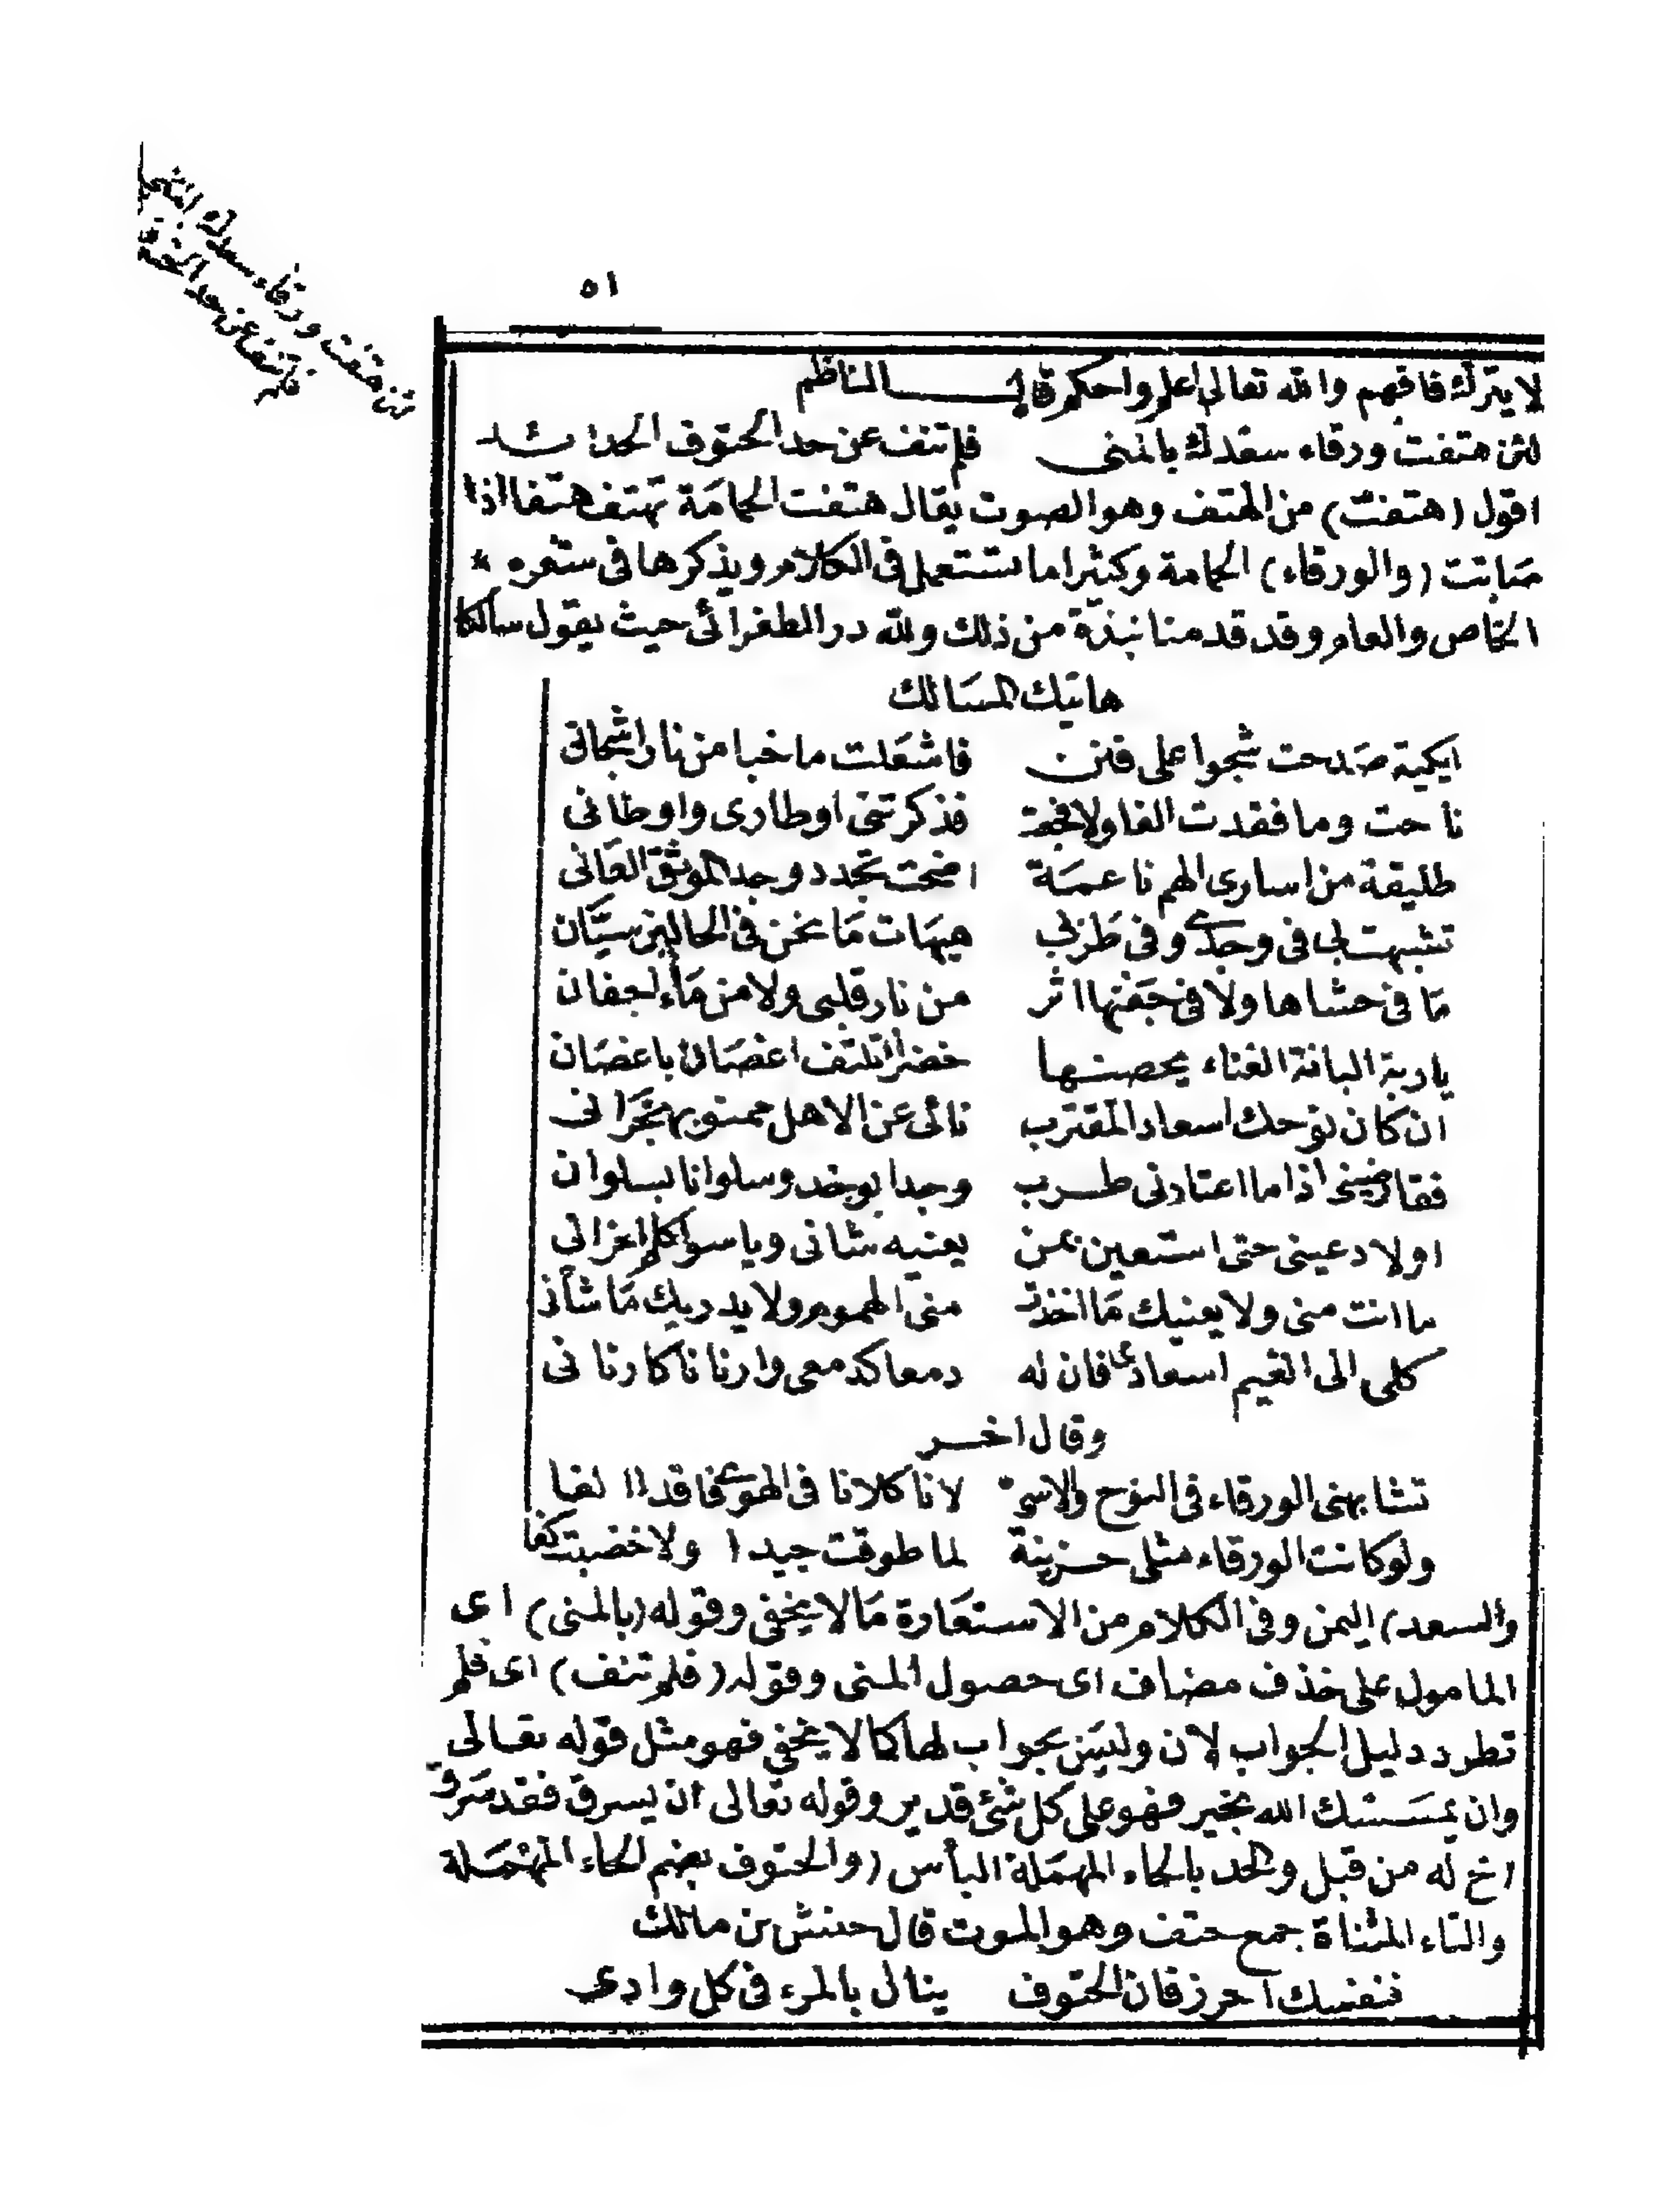 ٥١
لا يترك فافهم والله تعالى اعلم واحكم قال الناظم
لئن هتفت ورقاء سعدك بالمنى فلم تنف عن حد الحتوف الحدائد
اقول (هتفت) من الهتف وهو الصوت يقال هتفت الحمامة تهتف هتفا اذا
صاتت (والورقاء) الحمامة وكثيرا ما تستعمل فى الكلام ويذكرها فى شعره *
الخاص والعام وقد قدمنا نبذة من ذلك ولله در الطغرائى حيث يقول سالكا
هاتيك المسالك
ايكية صدحت شجوا على فنن فاشعلت ما خبا من نار اشجانى
ناحت وما فقدت الفا ولا فجعت فذكرتنى اوطارى واوطانى
طليقة من اسارى الهم ناعمة اضحت تجدد وجد الموثق العانى
تشبهت بى فى وجدى وفى طربى هيهات ما نحن فى الحالين سيان
ما فى حشاها ولا فى جفنها اثر من نار قلبى ولا من ماء اجفان
يا ربة البانة الغناء يحصنها خضراء تلتف اغصان باغصان
ان كان نوحك اسعاد المقترب نائى عن الاهل ممنو بهجران
فقارضينى اذا ما اعتادنى طرب وجدا بوجد وسلوانا بسلوان
اولا دعينى حتى استعين بمن يعنيه شانى وياسو كلم احزانى
ما انت منى ولا يعنيك ما اخذت منى الهموم ولا يدريك ما شانى
كلى الى الغيم اسعادى فان له دمعا كدمعى وارنانا كارنانى
وقال اخر
تشابهنى الورقاء فى النوح والاسى لانا كلانا فى الهوى فاقد الفا
ولو كانت الورقاء مثلى حزينة لما طوقت جيدا ولا خضبت كفا
والسعد) اليمن وفى الكلام من الاستعارة ما لا يخفى وقوله (بالمنى) اى
المامول على حذف مضاف اى حصول المنى وقوله (فلم تنف) اى فلم
تطرد دليل الجواب لان وليس بجواب لها كما لا يخفى فهو مثل قوله تعالى
وان يمسسك الله بخير فهو على كل شئ قدير وقوله تعالى ان يسرق فقد سرق
اخ له من قبل والحد بالحاء المهملة البأس (والحتوف بضم الحاء المهملة
والتاء المثناة جمع حتف وهو الموت قال حنش بن مالك
فنفسك احرز فان الحتوف ينال بالمرء فى كل وادى
لئن هتفت ورقاء سعدك
فلم تنف عن حد